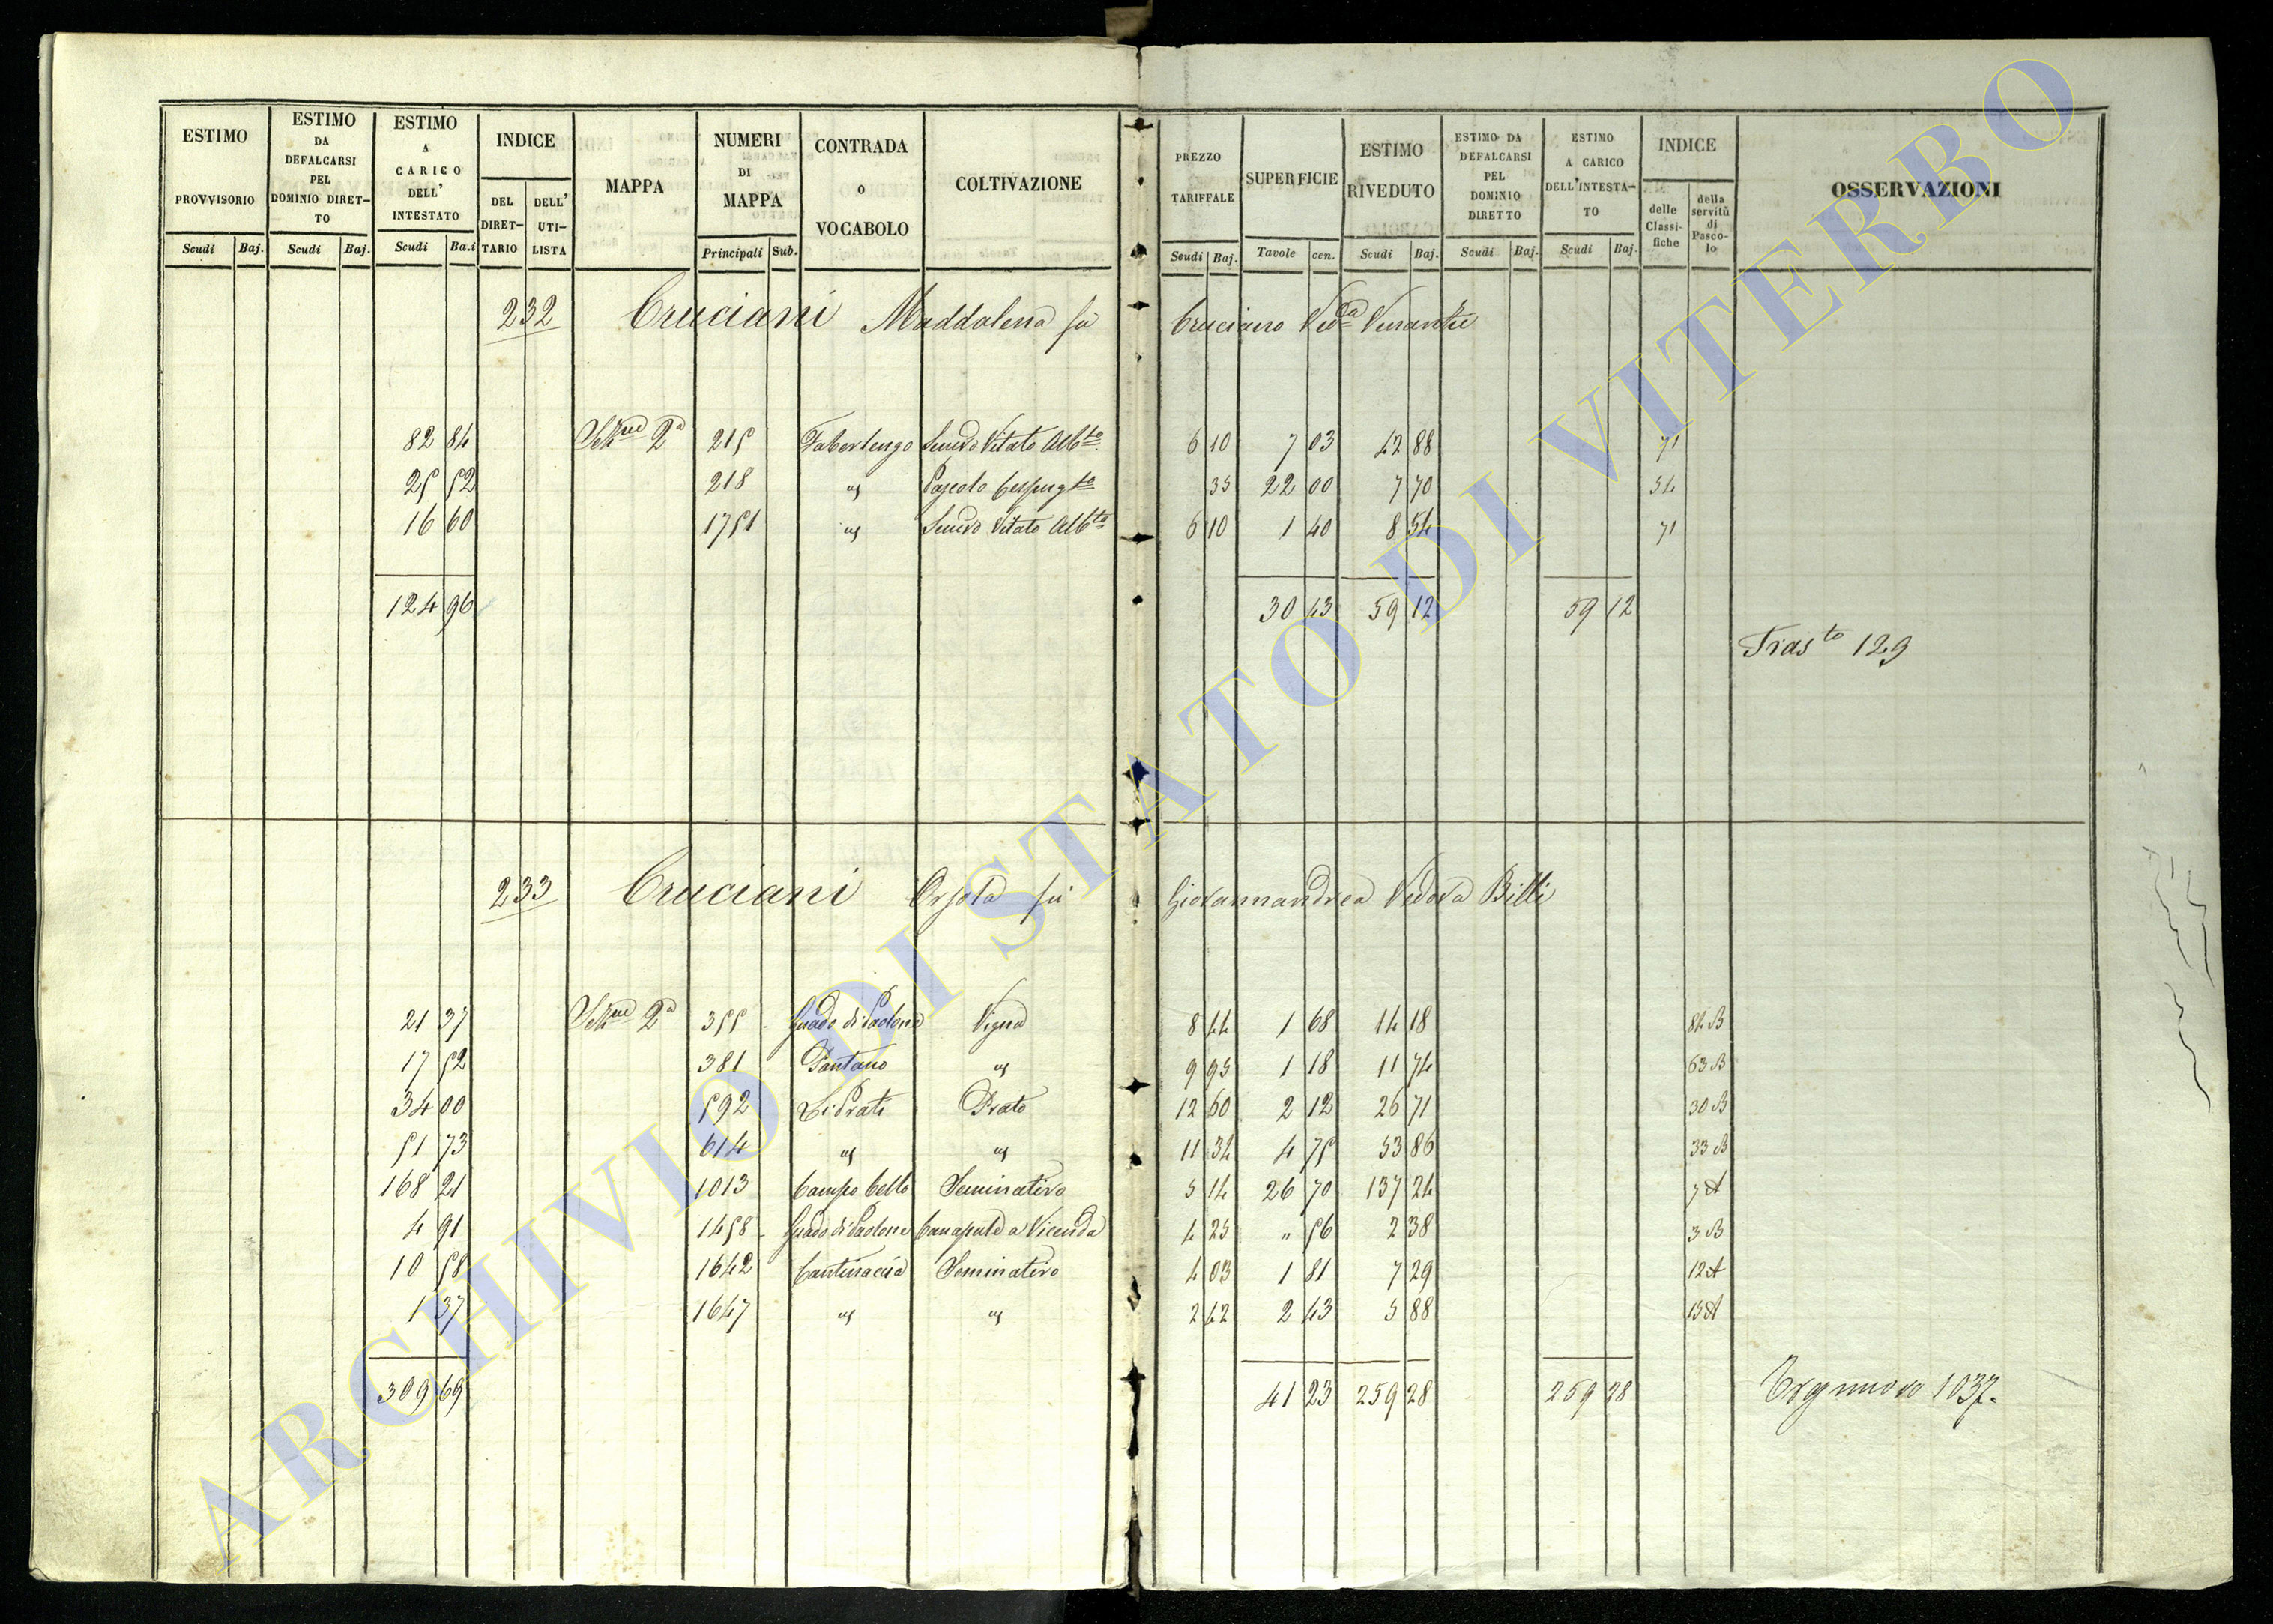 ESTIMO PROVVISORIO
ESTIMO DA DEFALCARSI PEL DOMINIO DIRET-TO
ESTIMO A CARICO DELL' INTESTATO
INDICE
DEL DIRET-TARIO
DELL' UTI-LISTA
MAPPA
NUMERI DI MAPPA
CONTRADA o VOCABOLO
COLTIVAZIONE
PREZZO TARIFFALE
SUPERFICIE
ESTIMO RIVEDUTO
ESTIMO DA DEFALCARSI PEL DOMINIO DIRETTO
ESTIMO A CARICO DELL'INTESTA-TO
INDICE
delle Classi-fiche
della servitù di Pasco-lo
OSSERVAZIONI
Scudi Baj. Scudi Baj. Scudi Ba.i Principali Sub. Scudi Baj. Tavole cen. Scudi Baj. Scudi Baj. Scudi Baj.
232 Cruciani Maddalena fù Cruciano Ved.a Venantii
82 84 Sez.ne 2a 215 Fabertengo Semvo Vitato Alb.to 6 10 7 03 42 88 71
25 52 218 " Pascolo Cespug.to 35 22 00 7 70 54
16 60 1751 " Semvo Vitato Alb.to 6 10 1 40 8 54 71
124 96 30 43 59 12 59 12
Tras.to 129
233 Cruciani Orsola fù Giovannandrea Vedova Billi
21 37 Sez.ne 2a 355 Guado di Paolone Vigna 8 44 1 68 14 18 84 B
17 52 381 Pantano " 9 95 1 18 11 74 63 B
34 00 592 Li Prati Prato 12 60 2 12 26 71 30 B
51 73 614 " " 11 34 4 75 53 86 33 B
168 21 1013 Campo bello Seminativo 5 14 26 70 137 24 7 A
4 91 1458 Guado di Paolone Canapule a Vicenda 4 25 " 56 2 38 3 B
10 58 1642 Cantinaccia Seminativo 4 03 1 81 7 29 12 A
1 37 1647 " " 2 42 2 43 5 88 15 A
309 69 41 23 259 28 259 28 1037.
ARCHIVIO DI STATO DI VITERBO